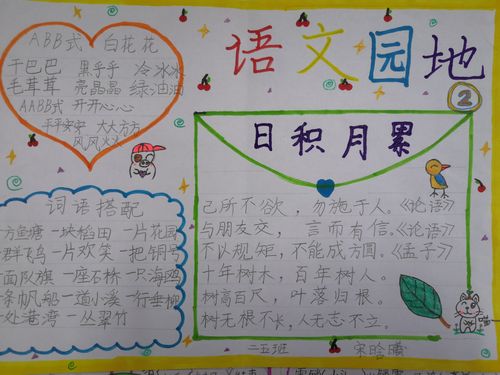 语文园地
②
ABB式 白花花
干巴巴 黑乎乎 冷冰冰
毛茸茸 亮晶晶 绿油油
AABB式 开开心心
平平安安 大大方方
风风火火
词语搭配
方鱼塘 一块稻田 一片花园
群飞鸟 一片欢笑 一把铜号
面队旗 一座石桥 一只海鸥
条帆船 一道小溪 一行垂柳
处港湾 一丛翠竹
日积月累
己所不欲，勿施于人。《论语》
与朋友交，言而有信。《论语》
不以规矩，不能成方圆。《孟子》
十年树木，百年树人。
树高百尺，叶落归根。
树无根不长，人无志不立。
二五班 宋晗